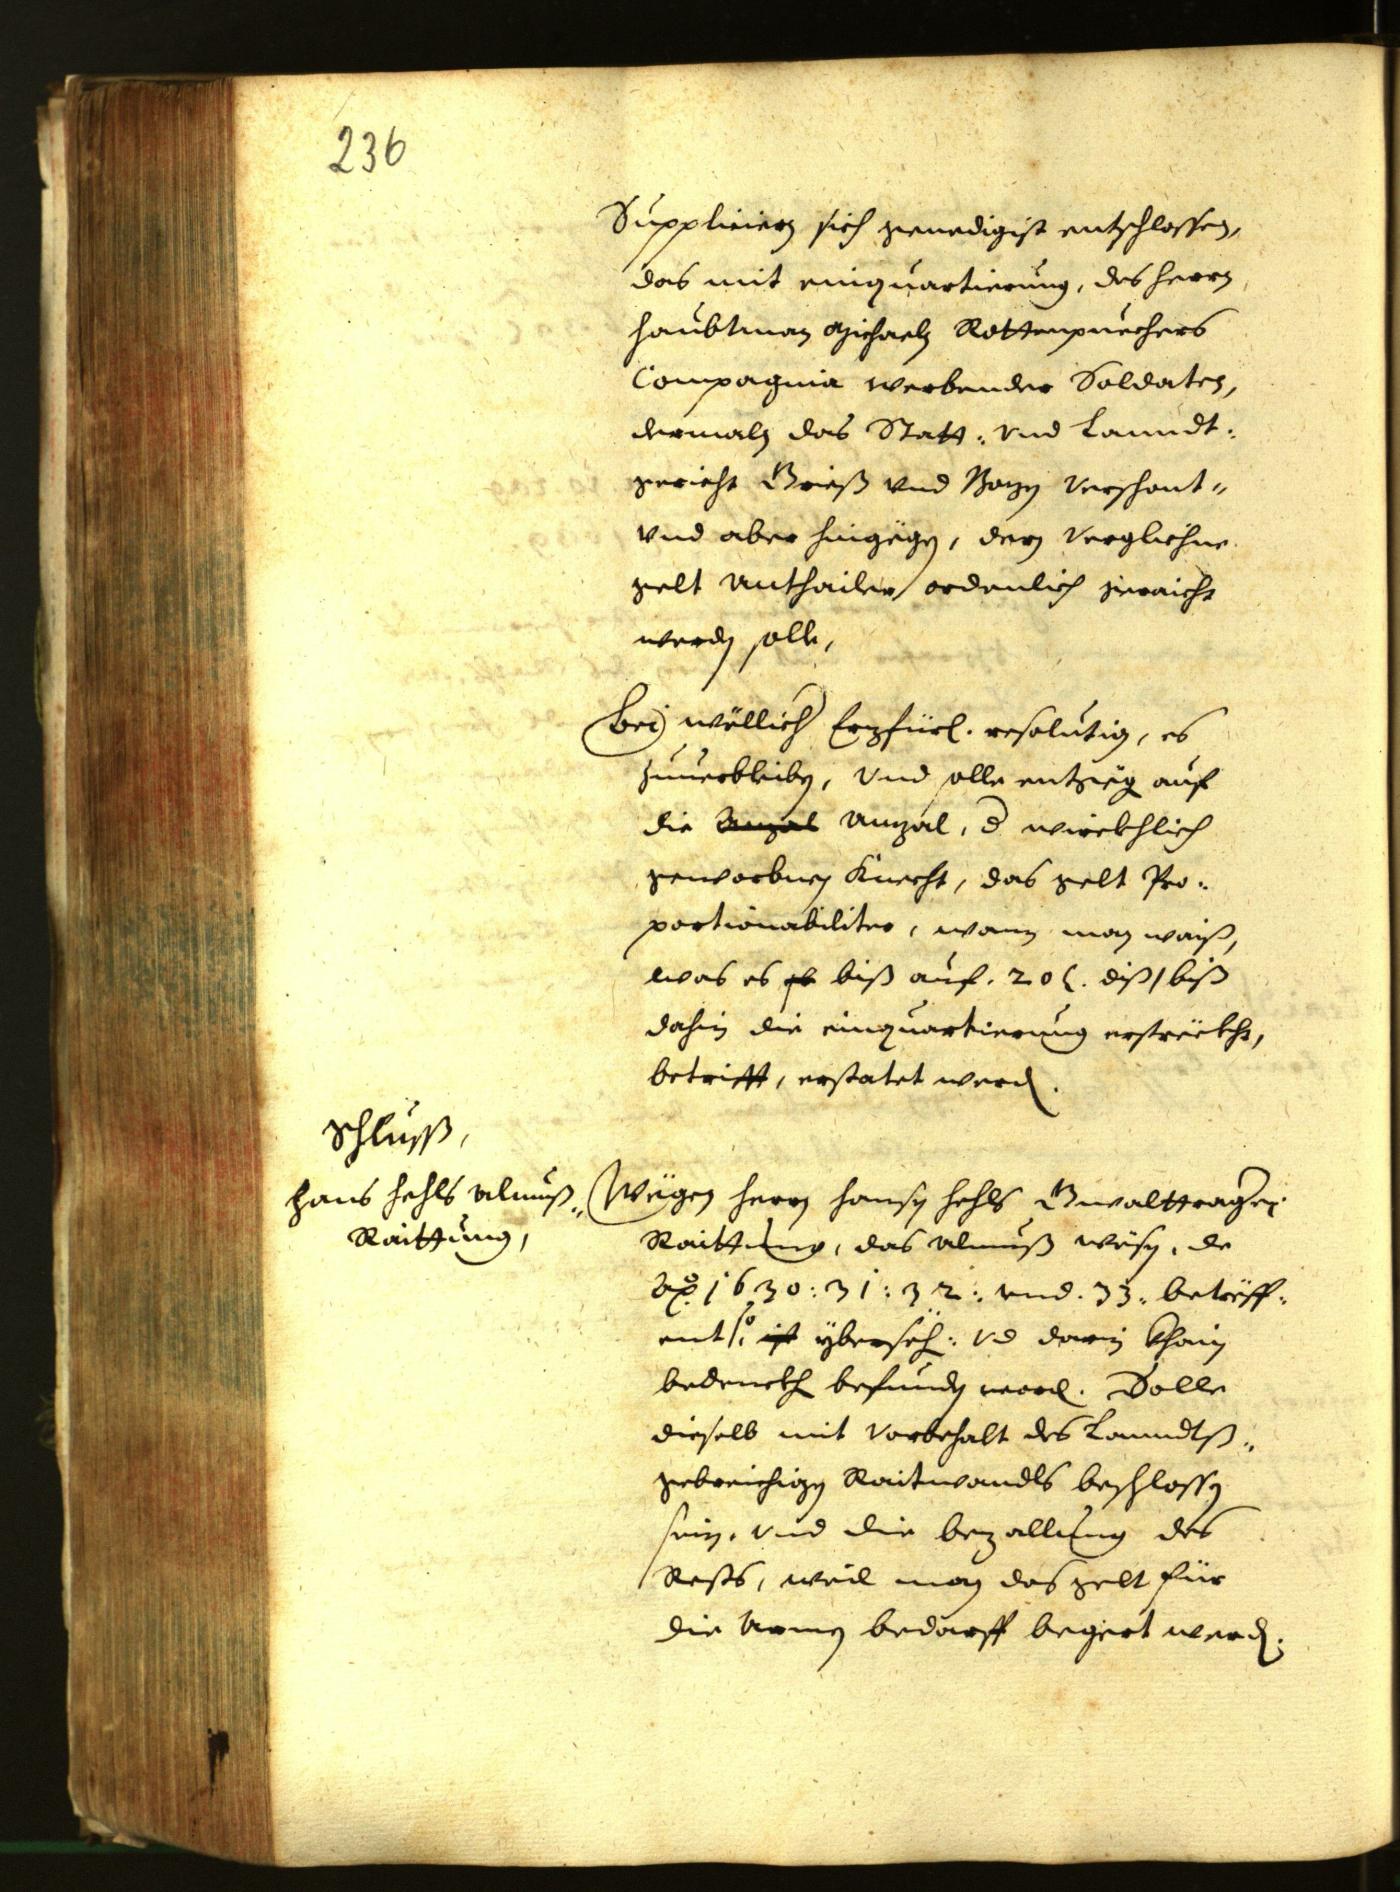 236
Suppliciern sich genedigist entschlossen,
das mit einquartierung, des herrn
haubtman Michaeln Rottenpuechers
Compagnia werbender Soldaten,
dermaln das Statt: vnd Lanndt:
gericht Grieß vnd Bozn verschont"
vnd aber hingegen, dem verglichne
gelt Anthailen ordenlich geraicht
werdn solle,
Bei wellich Erzfürl. resolution, es
zuuerbleiben, vnd solle entgeg auf
die Anzal Anzal, d wirckhlich
geworbnen Knecht, das gelt Pro:
portionabiliter, wann man waiß,
was es biß auf. 20 diß/ biß
dahin die einquartierung erstreckht,
betrifft, erstatet werd.
Schluss,
Hans hehls Almuß"
Raittung,
Wegen herrn Hansn hehls Gwalttragers
Raittung, das Almuß wesn, de
Ao. 1630: 31: 32: vnd. 33. betreff:
ent/ so ist yberseh: vd darin khain
bedenckh befundn word. Solle
dieselb mit vorbehalt des Lanndtß"
gebreichign Raitwandls beschlossn
sein, vnd die bezallung des
Rests, weil man das gelt für
die Armen bedarff begert werd.